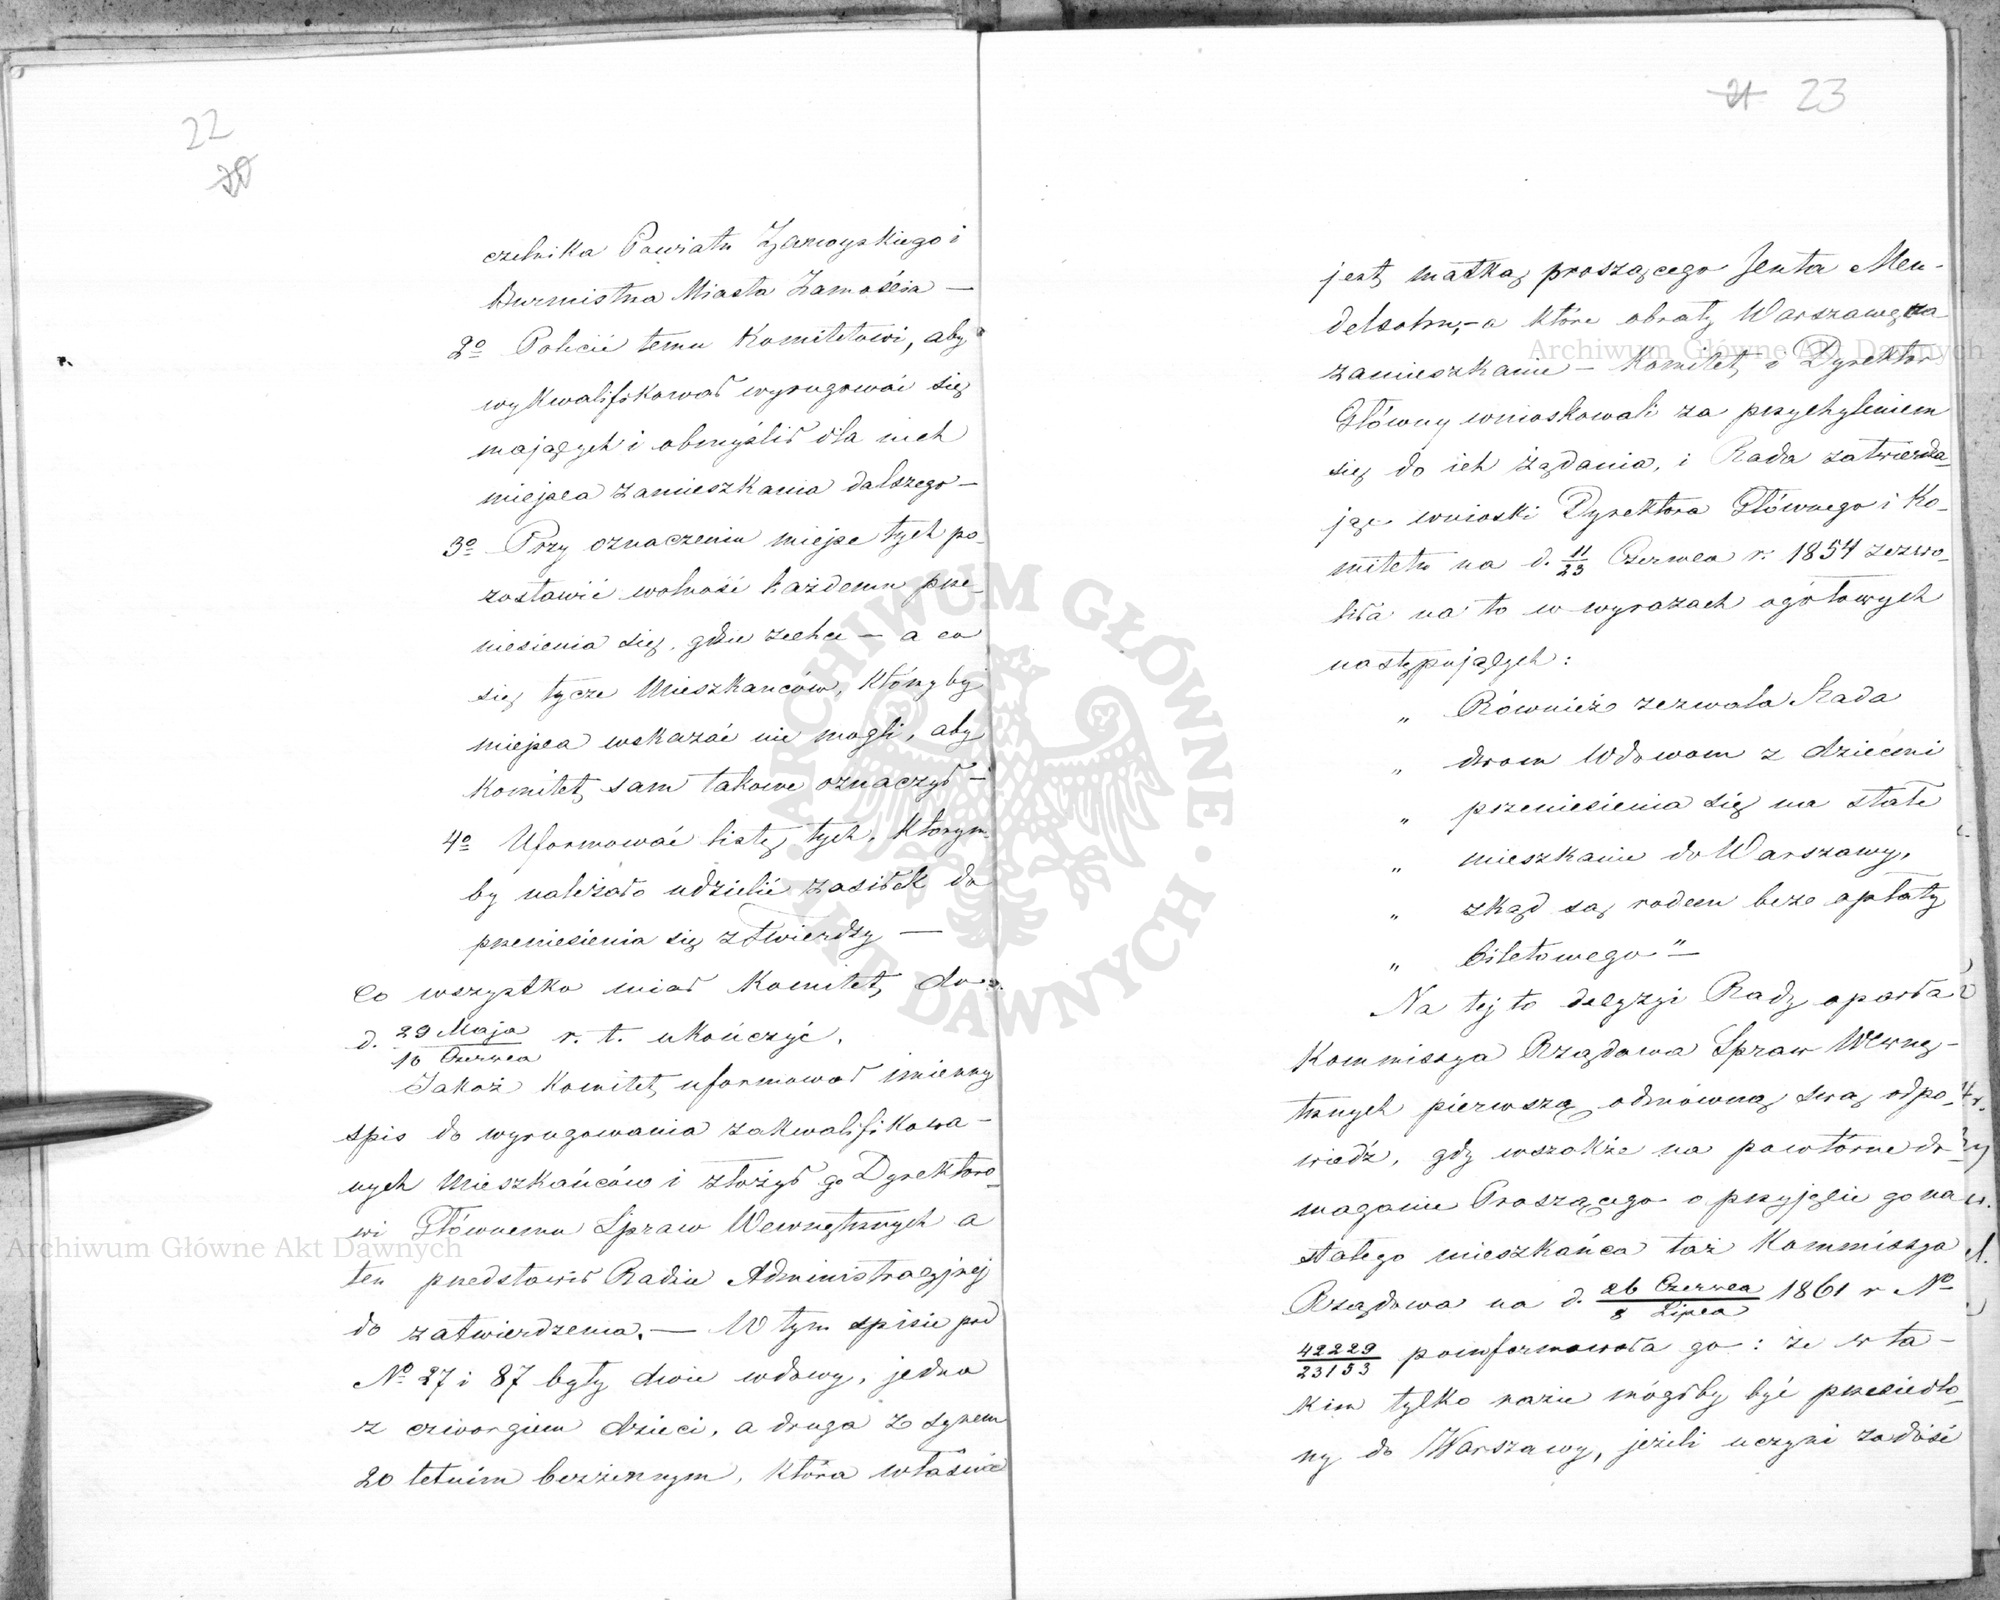 22
20
czelnika Powiatu Zamoyskiego i
Burmistrza Miasta Zamościa —
2o Polecić temu Komitetowi, aby
wykwalifikował wyrugować się
mających i obmyślił dla nich
miejsca zamieszkania dalszego —
3o Przy oznaczeniu miejsc tych po-
zostawić wolność każdemu prze-
niesienia się, gdzie zechce — a co
się tycze Mieszkańców, którzyby
miejsca wskazać nie mogli, aby
Komitet sam takowe oznaczył —
4o Uformować listę tych, którym-
by należało udzielić zasiłek do
przeniesienia się z twierdzy —
Co wszystko miał Komitet do
d. 29 Maja / 10 Czerwca r. t. ukończyć.
Jakoż Komitet uformował imienny
spis do wyrugowania zakwalifikowa-
nych Mieszkańców i złożył go Dyrektoro-
wi Głównemu Spraw Wewnętrznych a
ten przedstawił Radzie Administracyjnej
do zatwierdzenia. — W tym spisie pod
No 27 i 87 były dwie wdowy, jedna
z czworgiem dzieci, a druga z synem
20 letnim bezżennym, która właśnie
21 23
jest matką proszącego Jenta Men-
delsohn, — a które obrały Warszawę na
zamieszkanie — Komitet i Dyrektor
Główny wnioskowali za przychyleniem
się do ich żądania, i Rada zatwierdza-
jąc wnioski Dyrektora Głównego i Ko-
mitetu na d. 11/23 Czerwca r. 1854 zezwo-
liła na to w wyrazach ogółowych
następujących:
„ Również zezwala Rada
„ dwom Wdowom z dziećmi
„ przeniesienia się na stałe
„ mieszkanie do Warszawy,
„ zkąd są rodem bez opłaty
„ biletowego" —
Na tej to decyzyi Rady oparła
Kommissya Rządowa Spraw Wewnę-
trznych pierwszą odmówną swą odpo-
wiedź, gdy wszakże na powtórne do-
maganie Proszącego o przyjęcie go na
stałego mieszkańca taż Kommissya
Rządowa na d. 26 Czerwca / 8 Lipca 1861 r No
42229/23153 poinformowała go: że w ta-
kim tylko razie mógłby być przesiedlo-
ny do Warszawy, jeżeli uczyni zadość
Archiwum Główne Akt Dawnych
Archiwum Główne Akt Dawnych
ARCHIWUM GŁÓWNE AKT DAWNYCH